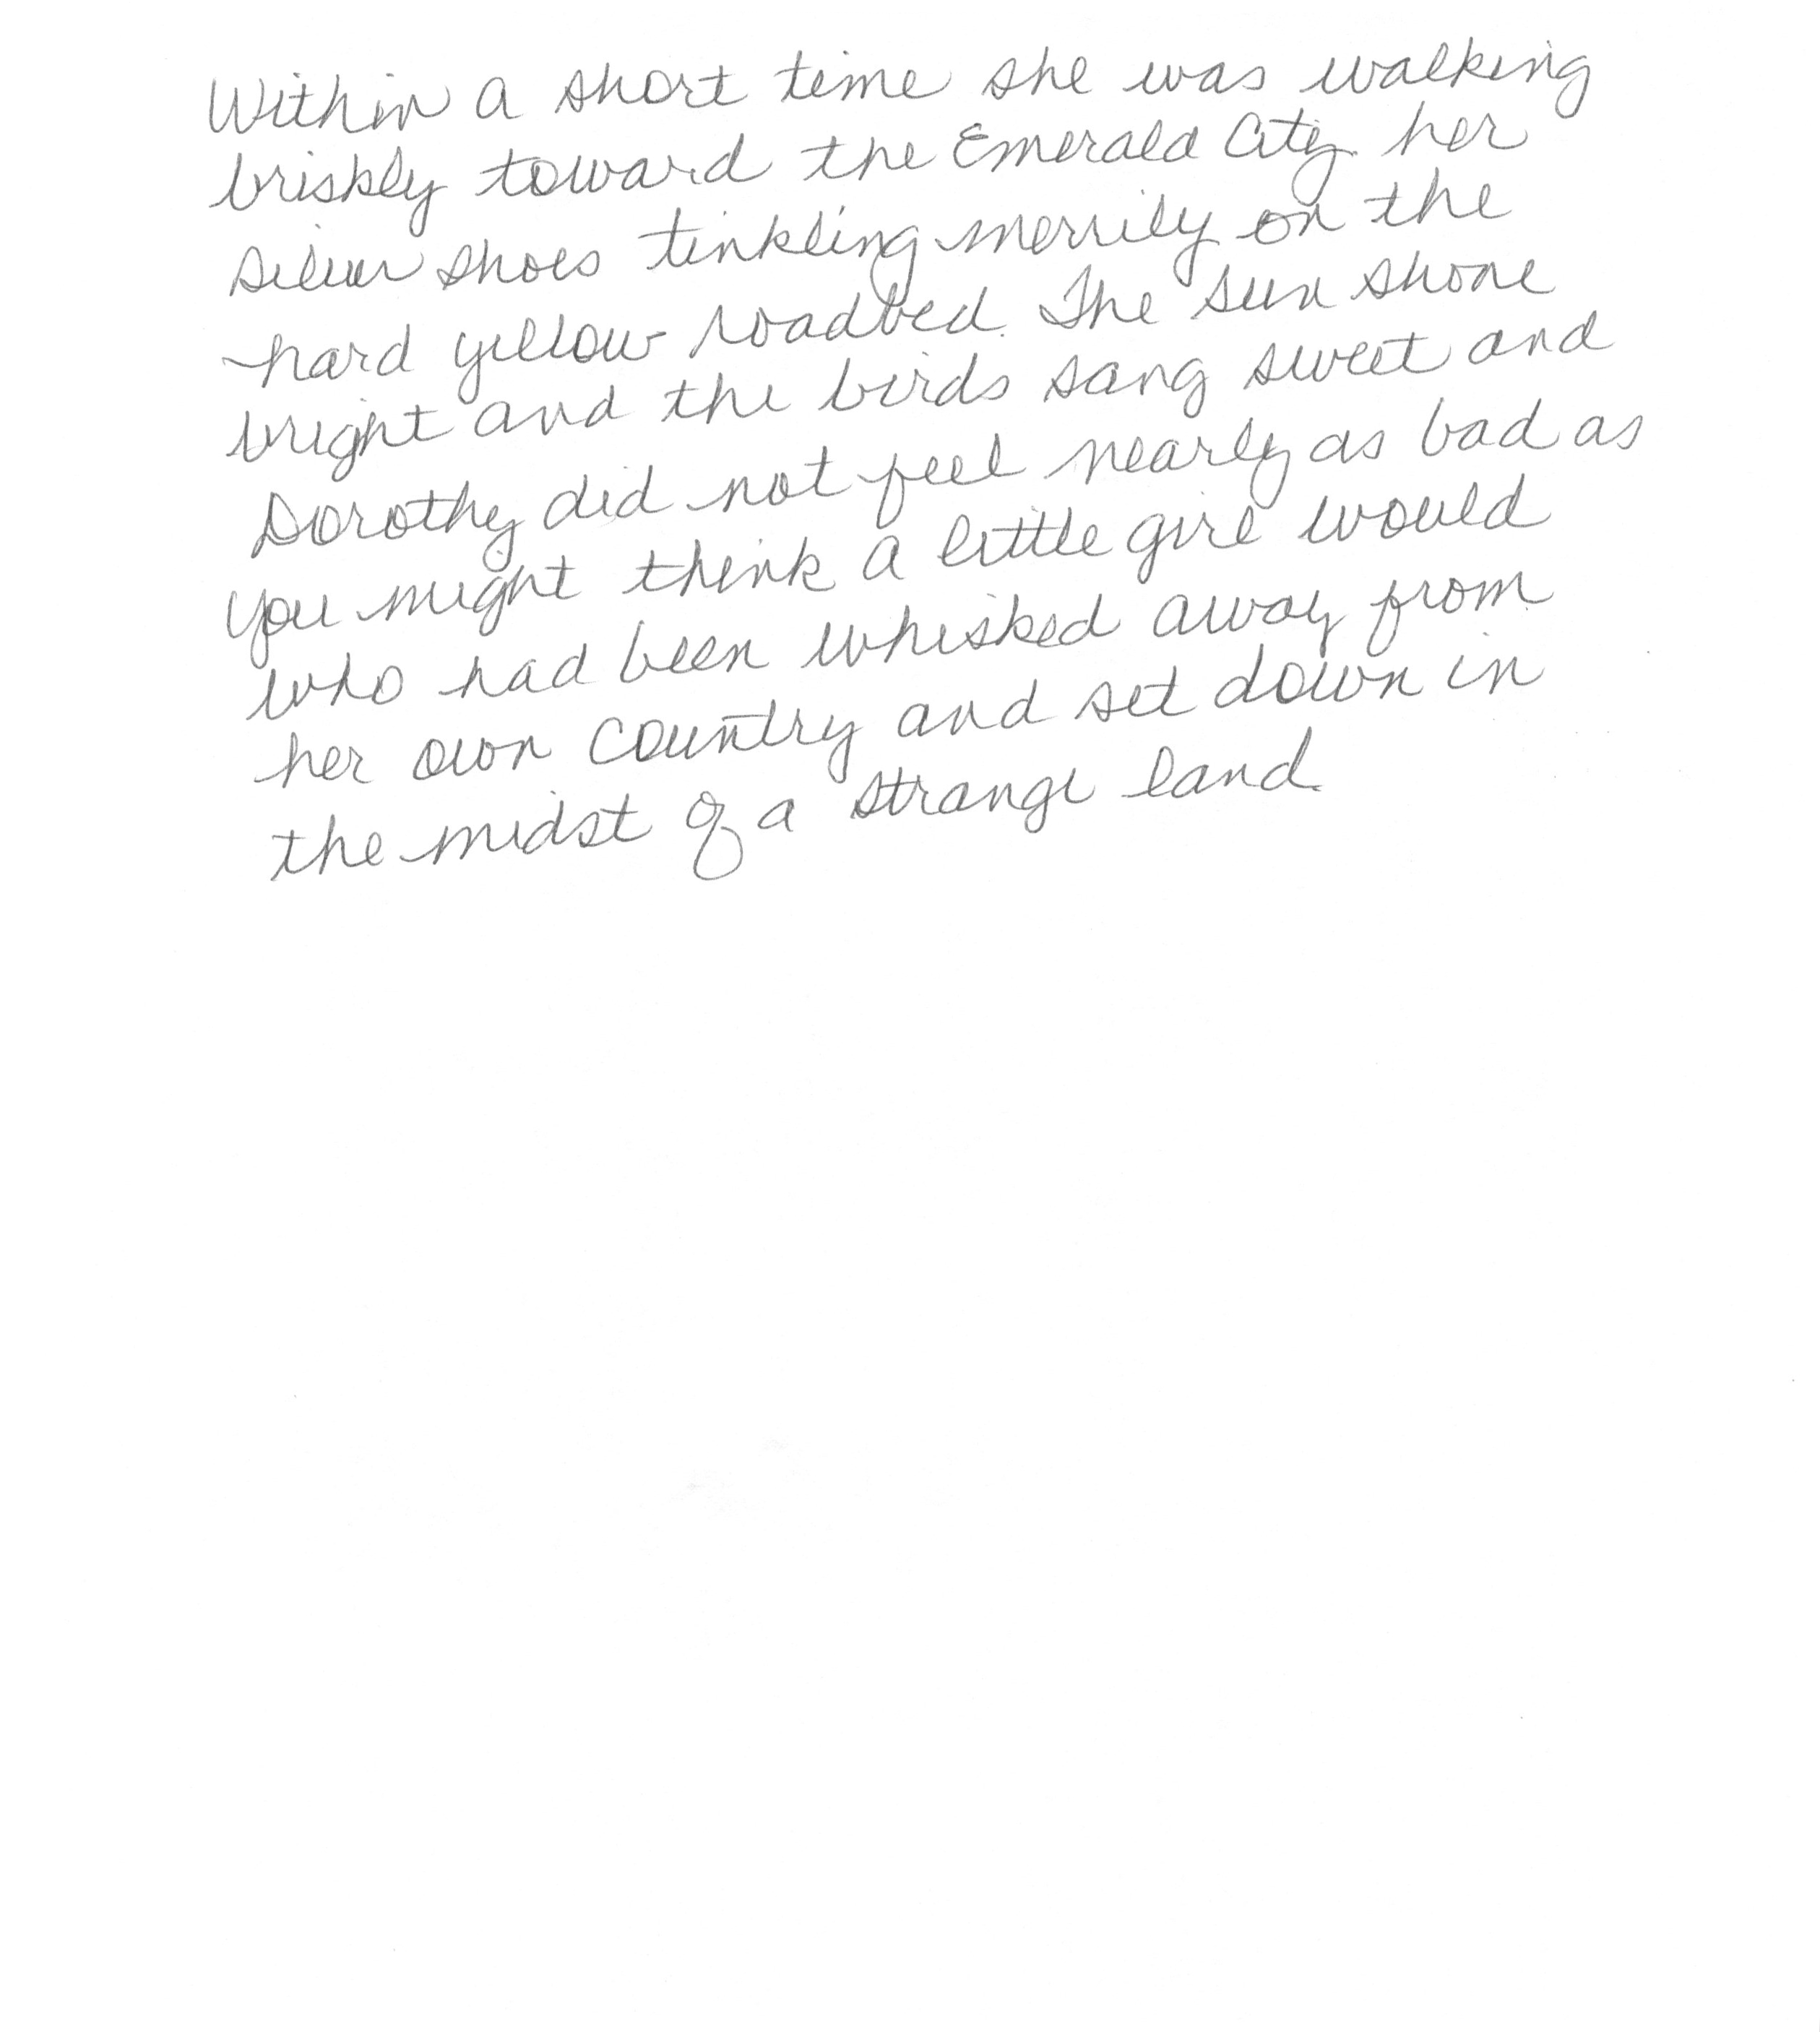 Within a short time she was walking
briskly toward the Emerald City her
silver shoes tinkling merrily on the
hard yellow roadbed. The sun shone
bright and the birds sang sweet and
Dorothy did not feel nearly as bad as
you might think a little girl would
who had been whisked away from
her own country and set down in
the midst of a strange land.